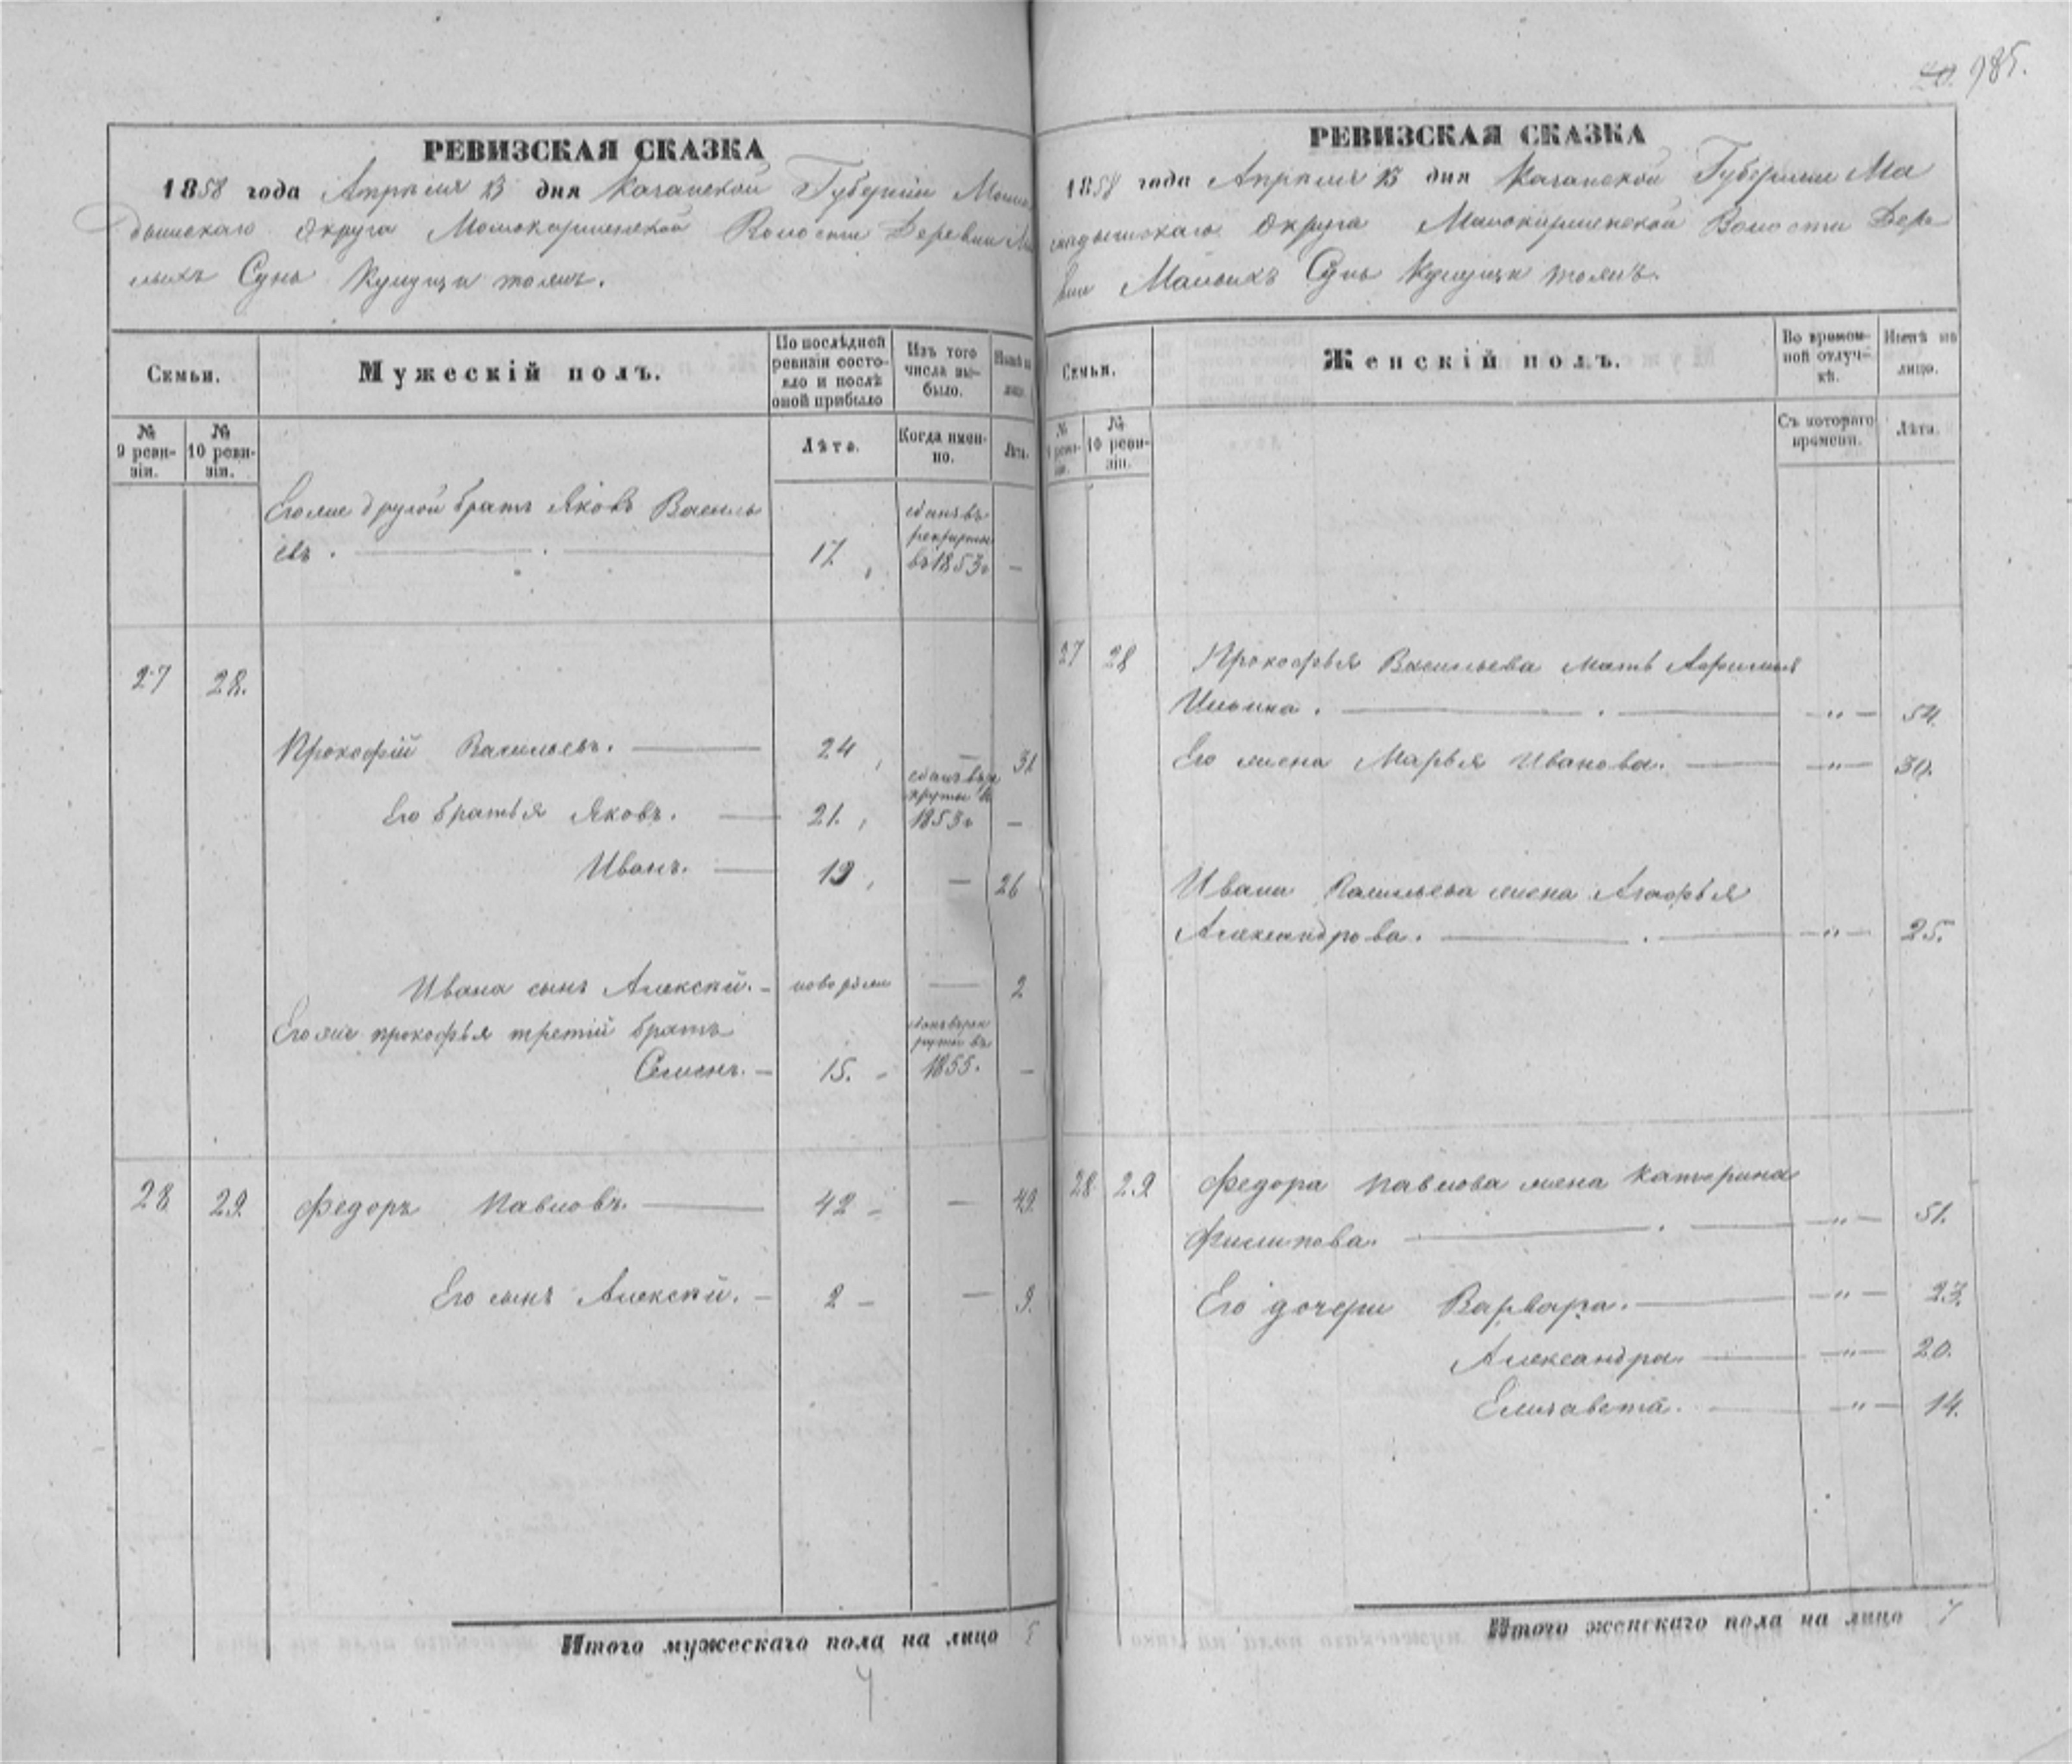 985.
РЕВИЗСКАЯ СКАЗКА
1858 года Апрѣля 15 дня Казанской Губернїи Мама
дышскаго округа Мамокирменской Волости Деревни Ма
лыхъ Сунь
Семьи.
Мужескій полъ.
По послѣдней ревизіи состояло и послѣ оной прибыло
Изъ того числа выбыло.
Нынѣ на лицо.
№ 9 ревизіи.
№ 10 ревизіи.
Лѣта.
Когда именно.
Лѣта.
Егоже другой братъ Яковъ Василь
евъ.
17
сданъ въ рекруты въ 1853г
27
28.
Прокофій Васильевъ.
24
31
Его братья Яковъ.
21.
сданъ въ рекруты въ 1853г
Иванъ.
19
26
Ивана сынъ Алексѣй.
новорожд
2
Егоже прокофья третій братъ
Семенъ.
15.
сданъ въ рекруты въ 1855.
28
29.
Федоръ Павловъ.
42
49.
Его сынъ Алексѣй.
2
9.
Итого мужескаго пола на лицо 5
РЕВИЗСКАЯ СКАЗКА
1858 года Апрѣля 15 дня Казанской Губернии Ма
мадышскаго округа Мамокирменской Волости Дере
вни Малыхъ Сунь
Семьи.
Женскій полъ.
Во временной отлучкѣ.
Нынѣ на лицо.
№ 9 ревизіи.
№ 10 ревизіи.
Съ котораго времени.
Лѣта.
27
28
Прокофья Васильева мать Афимья
Ильина.
"
54.
Его жена Марья Иванова.
"
30.
Ивана Васильева жена Агафья
Александрова.
"
25.
28
29
Федора Павлова жена Катерина
Филипова.
"
51.
Его дочери Варвара.
"
23.
Александра.
"
20.
Елизавета.
"
14.
Итого женскаго пола на лицо 7